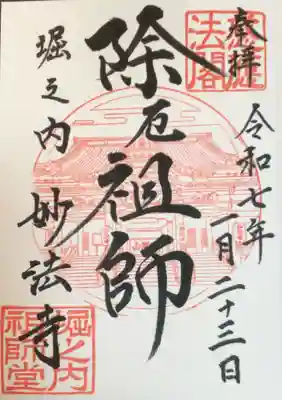 奉拝
令和七年一月二十三日
除厄祖師
堀之内妙法寺
堀之内
祖師堂